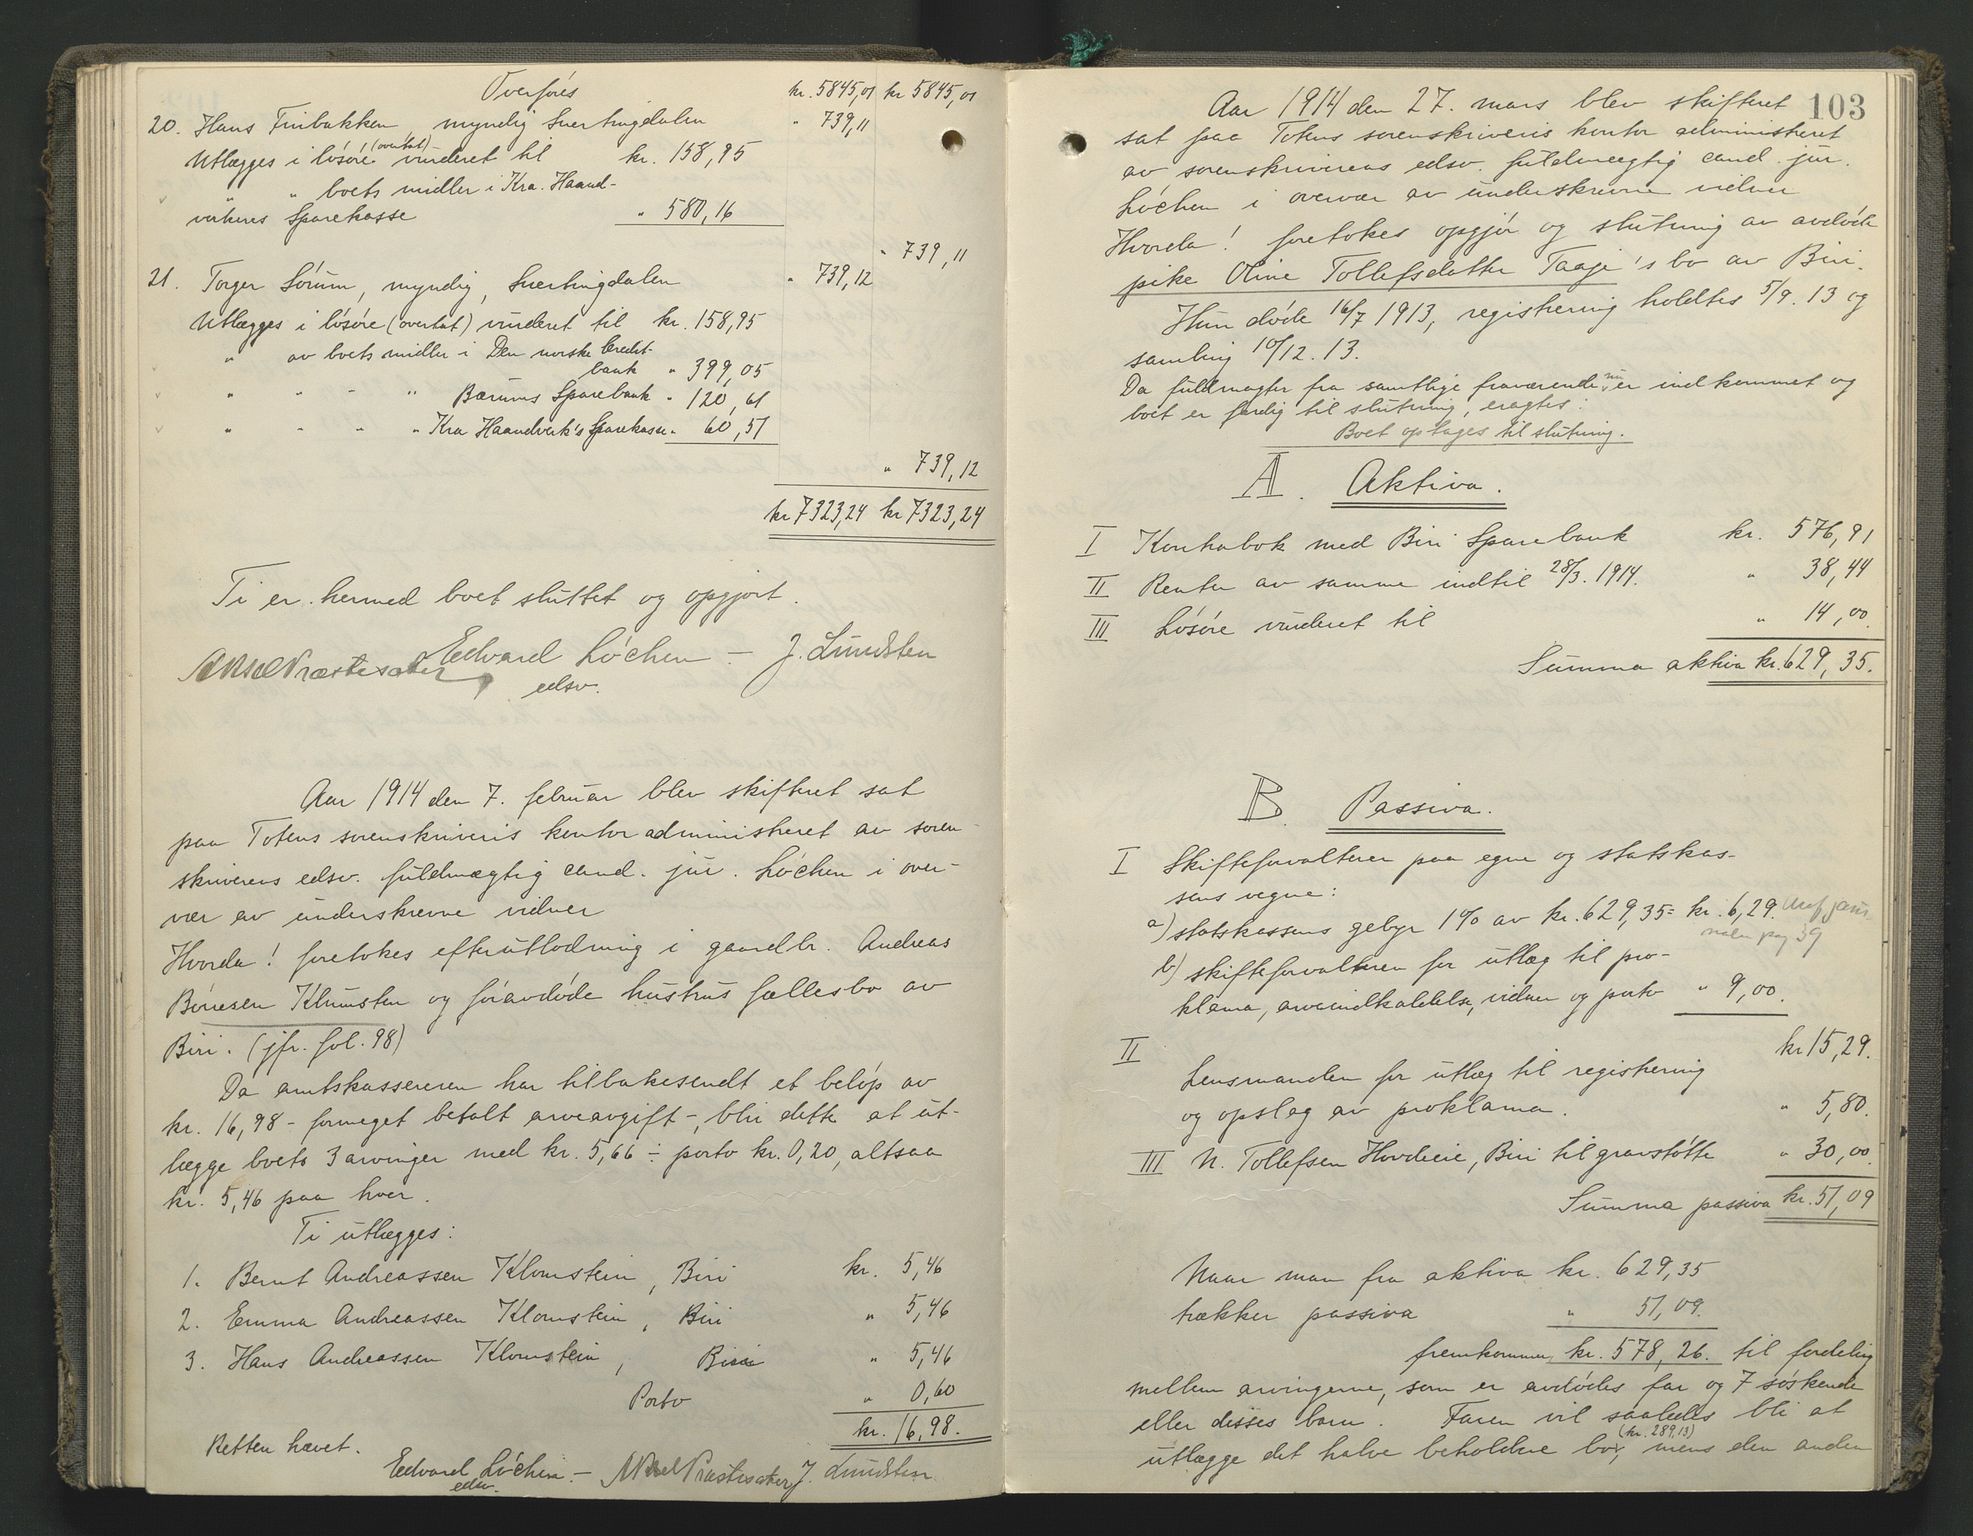 Overføres kr. 5845,01 kr 5845,01
20. Hans Finbakken, myndig Snertingdalen " 739,11
Utlægges i løsøre (overtat) vurderet til kr. 158,95
" " boets midler i Kra. Haand-
verkeres Sparekasse " 580,16
" 739,11
21. Torger Sørum, myndig, Snertingdalen " 739,12
Utlægges i løsøre (overtat) vurderet til kr. 158,95
" av boets midler i Den norske Credit-
bank " 399,05
" " " " Bærums Sparebank " 120,61
" " " " Kra Haandverk's Sparekasse " 60,51
" 739,12
kr 7323,24 kr 7323,24
Ti er hermed boet sluttet og opgjort.
Aksel Præstesæter Edvard Løchen – J. Lundsten
edsv.
Aar 1914 den 7. februar blev skifteret sat
paa Totens sorenskriveris kontor administreret av soren-
skriverens edsv. fuldmægtig cand. jur. Løchen i over-
vær av underskrevne vidner
Hvorda! foretokes efterutlodning i gaardbr. Andreas
Bernesen Klumsten og føravdøde hustrus fællesbo av
Biri. (jfr. fol. 98)
Da amtskassereren har tilbakesendt et beløp av
kr. 16,98 – formeget betalt arveavgift –, blir dette at ut-
lægge boets 3 arvinger med kr. 5,66 ÷ porto kr. 0,20, altsaa
kr. 5,46 paa hver.
Ti utlægges:
1. Bernt Andreassen Klomstein, Biri kr. 5,46
2. Emma Andreassen Klomstein, Biri " 5,46
3. Hans Andreassen Klomstein, Biri " 5,46
Porto " 0,60
kr. 16,98.
Retten hævet.
Edvard Løchen – Aksel Præstesæter J. Lundsten
edsv.
103
Aar 1914 den 27. mars blev skifteret
sat paa Totens sorenskriveris kontor administreret
av sorenskriverens edsv. fuldmægtig cand. jur.
Løchen i overvær av underskrevne vidner
Hvorda! foretokes opgjør og slutning av avdøde
pike Oline Tollefsdatter Taaje's bo av Biri.
Hun døde 16/7 1913, registrering holdtes 5/9. 13 og
samling 10/12. 13.
Da fuldmagter fra samtlige fraværende nu er indkommet og
boet er færdig til slutning, eragtes:
Boet optages til slutning.
A. Aktiva.
I Kontrabok med Biri Sparebank kr. 576,91
II Renter av samme indtil 28/3. 1914. " 38,44
III Løsøre vurderet til " 14,00
Summa aktiva kr. 629,35.
B. Passiva.
I Skifteforvalteren paa egne og statskas-
sens vegne:
a) statskassens gebyr 1% av kr. 629,35 = kr. 6,29.
pag 39
b) skifteforvalteren for utlæg til pro-
klama, arveindkaldelse, vidner og porto " 9,00.
kr 15,29.
II Lensmanden for utlæg til registrering
og opslag av proklama. " 5,80.
III N. Tollefsen Hovdeeie, Biri til gravstøtte " 30,00
Summa passiva kr. 51,09
Naar man fra aktiva kr. 629,35
trækker passiva " 51,09.
fremkommer kr. 578,26. til fordeling
mellem arvingerne, som er avdødes far og 7 søskende
eller disses barn. Faren vil saaledes bli at
utlægge det halve beholdne bo (kr. 289,13), mens den anden